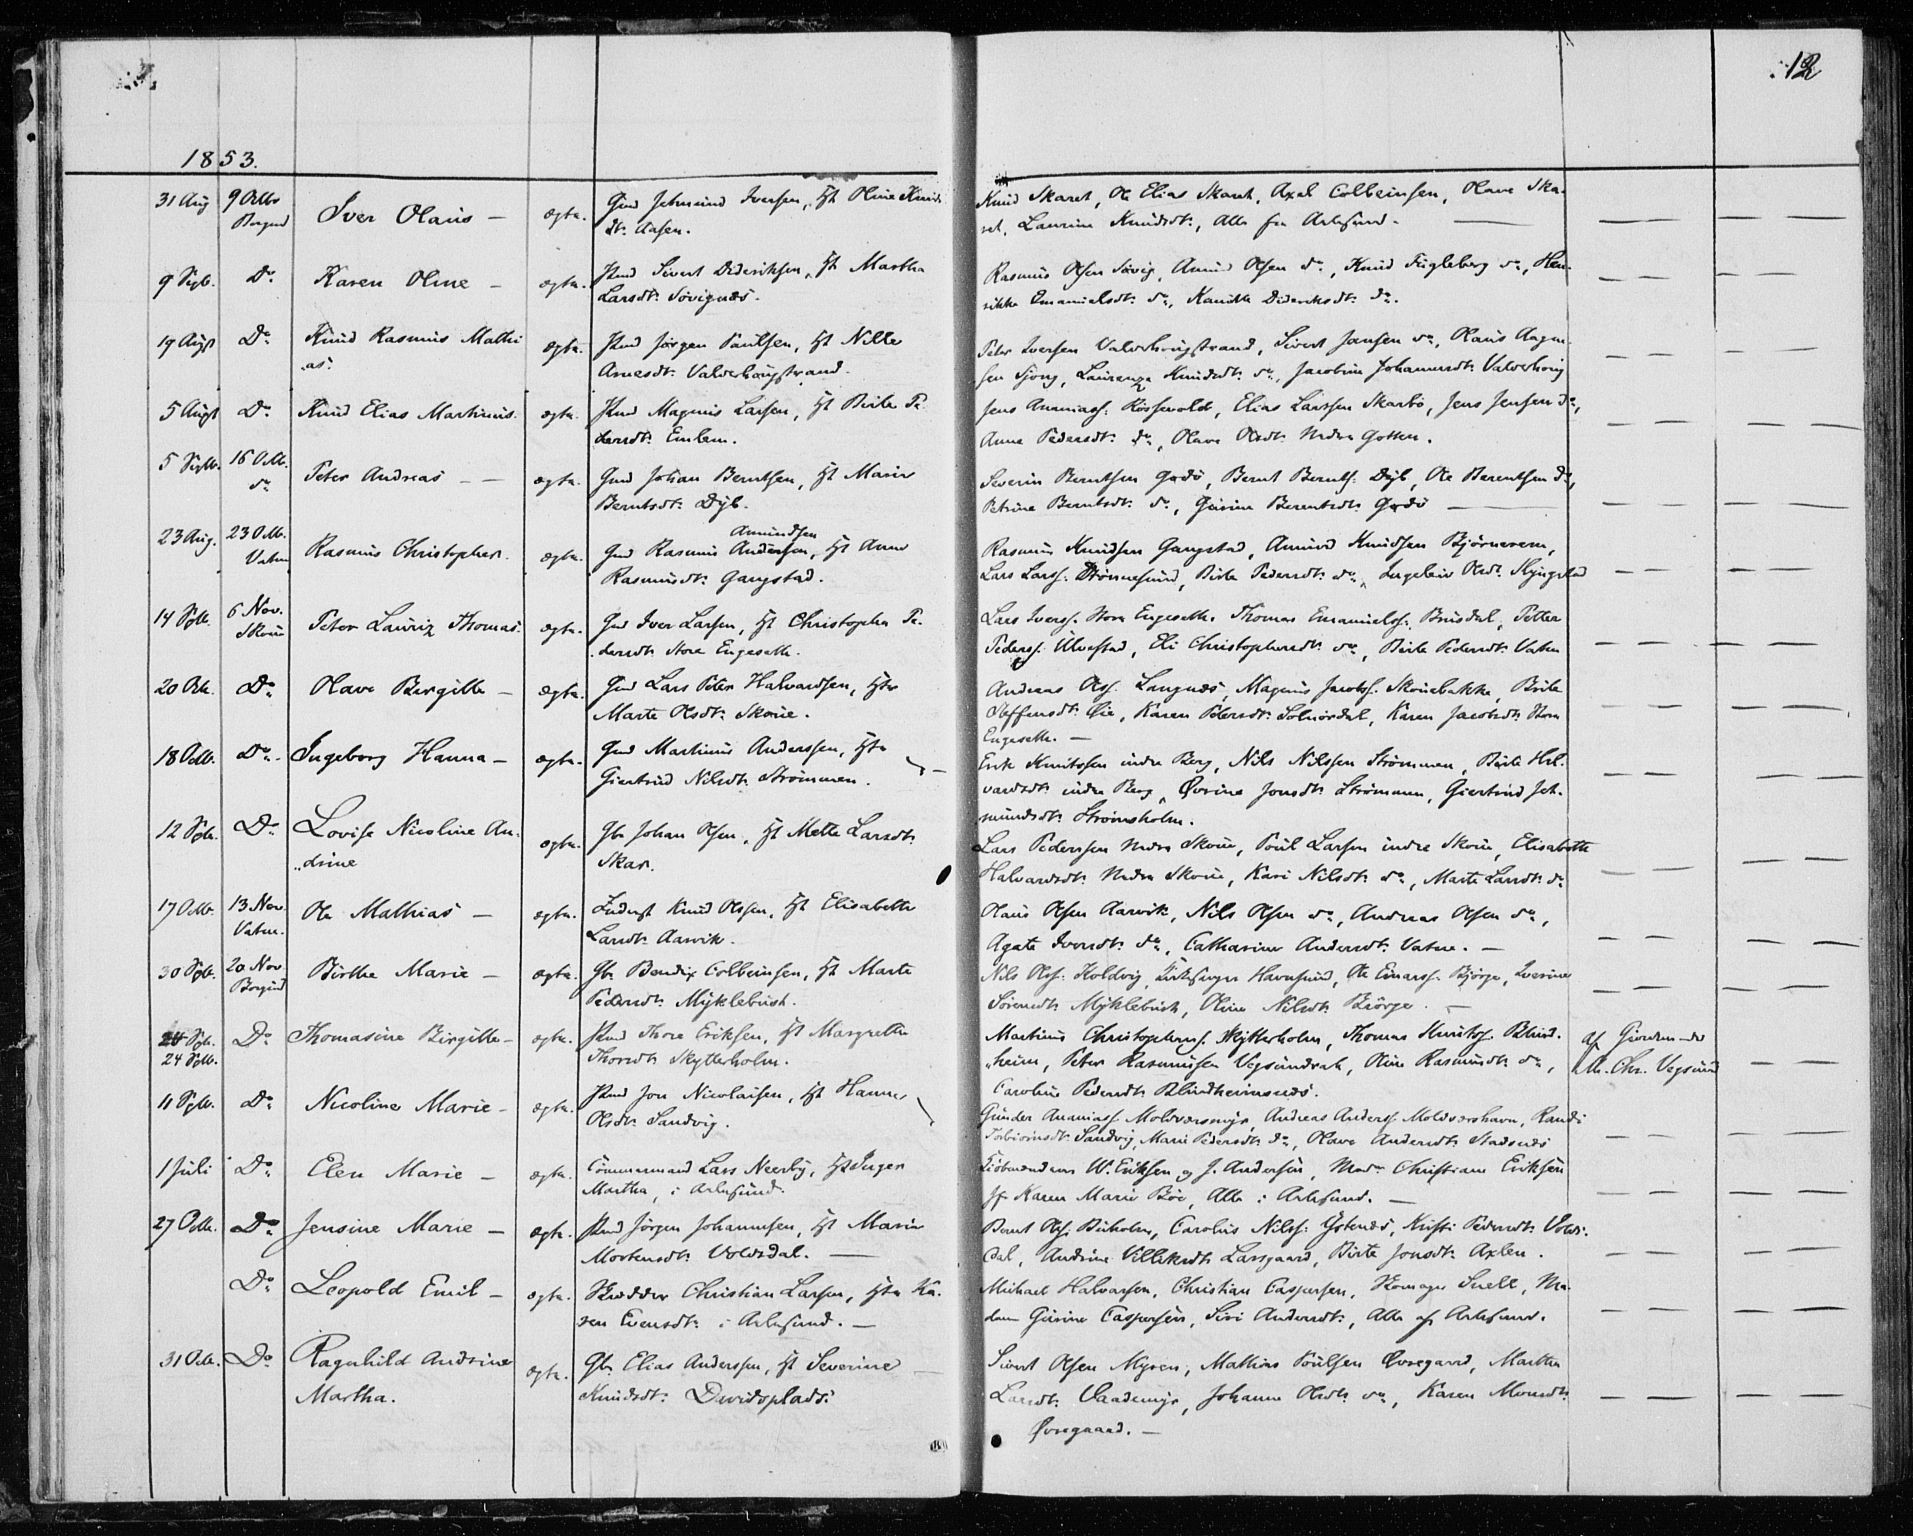 12
1853.
31 Aug 9 Octbr Borgund Iver Olaus — ægte. Gmd Jetmund Iversen, H. Oline Knuds
dt. Aasen.
Knud Skaret, Ole Elias Skaret, Axel Colbeinsen, Olave Ska-
ret, Laurine Knudsdt., Alle fra Aalesund.
9 Sepb. Do Karen Oline — ægte. Hmd Sivert Dideriksen, H. Martha
Larsdt. Søvignæs.
Rasmus Olsen Søvig, Amund Olsen do, Knud Fugleberg do, Hen-
rikke Emanielsdt. do, Didericksdt. do.
19 Augst Do Knud Rasmus Mathi
as. ægte. Hmd Jørgen Paulsen, H. Nille
Arnesdt. Valderhougstrand.
Peter Iversen Valderhougstrand, Sivert Jansen do, Olaus Aagu-
sen Sjong, Laurenze Knudsdt. do, Jacobine Johannesdt. Valderhoug
5 Augst Do Knud Elias Martinus. ægte. Hmd Magnus Larsen, H. Birte Pe-
dersdt. Emlem.
Jens Ananiass. Rössevold, Elias Larssen Skarbö, Jens Jensen do,
Anne Pedersdt. do, Olave Olsdt. Nedre Gotten.
5 Septb. 16 Octb. do Peter Andreas — — ægte. Gmd Johan Berntsen, H. Marie
Berntsdt. Dyb.
Severin Berntsen Godö, Bernt Bernts. Dyb, Ole Berentsen do,
Petrine Berntsdt. do, Gurine Berentsdt. Godö
23 Aug. 23 Octb. Vatne Rasmus Christopher. ægte. Gmd Rasmus Andersen Amundsen, H. Anne
Rasmusdt. Gangstad.
Rasmus Knudsen Gangstad, Amund Knudsen Björnerem,
Lars Larss. Strömmesund, Birte Pedersdt. do, Ingeleiv Olsdt.
14 Sptb. 6 Nov. Skoue Peter Lauriz Thomas. ægte. Gmd Iver Larsen, H. Christophe Pe-
dersdt. Store Engesette.
Lars Iverss. Store Engesette. Thomas Emanuelss. Brusdal, Petter
Pederss. Ulvestad, Eli Christophersdt. do, Birte Pedersdt. Vatne
20 Octb. Do Olave Birgitte — ægte. Gmd Lars Peter Halvardsen, Htr
Marte Olsdt. Skoue.
Andreas Olss. Langnæs, Magnus Jacobs. Skouebakke, Birte
Steffensdt. Öie, Karen Pedersdt. Solnördal, Karen Jacobsdt. Store
Engesette. —
18 Octb. Do Ingeborg Hanna — ægte. Gmd Martinus Anderssen, Htr
Giertrud Nilsdt. Strömmen.
Erik Knutssen indre Berg, Nils Nilssen Strömmen, Birte Hal-
vardsdt. indre Berg, Jonsdt. Strömmen, Giertrud Jet-
mundsdt. Strömsholm.
12 Sptb. Do Lovise Nicoline An-
drine ægte. Gbr Johan Olsen, H. Mette Larsdt.
Skar.
Lars Pederssen Nedre Skoue, Poul Larsen indre Skoue, Elisabeth
Halvardsdt. Nedre Skoue, Kari Nilsdt. do, Marte Larsdt. do
17 Octb. 13 Nov. Vatne. Ole Mathias — ægte. Inderst Knud Olssen, H. Elisabeth
Larsdt. Aarvik.
Olaus Olsen Aarvik, Nils Olsen do, Andreas Olsen do,
Agate Iversdt. do, Catharine Andersdt. Vatne. —
30 Sptb. 20 Nov Borgund Birthe Marie — ægte. Gbr. Bendix Colbeinsen, H. Marte
Pedersdt. Myklebust.
Nils Olss. Holdvig, Kirkesanger Havnsund, Ole Einarss. Bjørge, Iverine
Sörensdt. Myklebust, Oline Nilsdt. Björge. —
24 Sptb. Do Thomasine Birgitte — ægte. Hmd Thore Eriksen, H. Margrethe
Thoresdt. Skytterholm.
Martinus Christophers. Skytterholm, Thomas Knuts. Blind-
heim, Peter Rasmussen Vegsundrak, Oline Rasmusdt. do,
Caroline Pedersdt. Blindheimsnes.
af Giordemoder
M. Chr. Vegsund
11 Sptb. Do Nicoline Marie — ægte. Hmd Jon Nicolaisen, H. Hanna
Olsdt. Sandvig.
Gunder Ananiass. Moldversmyr, Andreas Anderss. Moldvershavn, Randi
Torbiörnsdt. Sandvig, Marie Pedersdt. do, Olave Andersdt. Stadsnes
1 Juli Do Elen Marie — ægte. Tömmermand Lars Neerby, H. Inger
Martha, i Aalesund.
Kiöbmændene W. Eriksen og J. Andersen, Mad. Christiane Eriksen
Jfr Karen Marie Böe, Alle i Aalesund. —
27 Octb. Do Jensine Marie — ægte. Hmd Jörgen Johannesen, H. Marie
Mortensdt. Voldsdal. —
Bernt Olss. Buholm, Carolus Nilss. Ystenes, Kristi Pedersdt. Volds-
dal, Andrine Villiksdt. Larsgaard, Birte Jonsdt. Axlen.
Do Leopold Emil — ægte. Skrædder Christian Larsen, Htr Ka-
ren Evensdt. i Aalesund. —
Michael Halvorsen, Christian Caspersen, Skomager Snell, Ma-
dam Gurine Caspersen, Siri Andersdt., Alle af Aalesund.
31 Octb. Do Ragnhild Andrine
Martha. ægte. Gbr. Elias Anderssen, H. Severine
Knudsdt. Davidsplads.
Sivert Olsen Myren, Mathias Poulsen Øvregaard, Martha
Larsdt. Vaademyr, Johanne Olsdt. do, Karen Monsdt.
Øvregaard. —